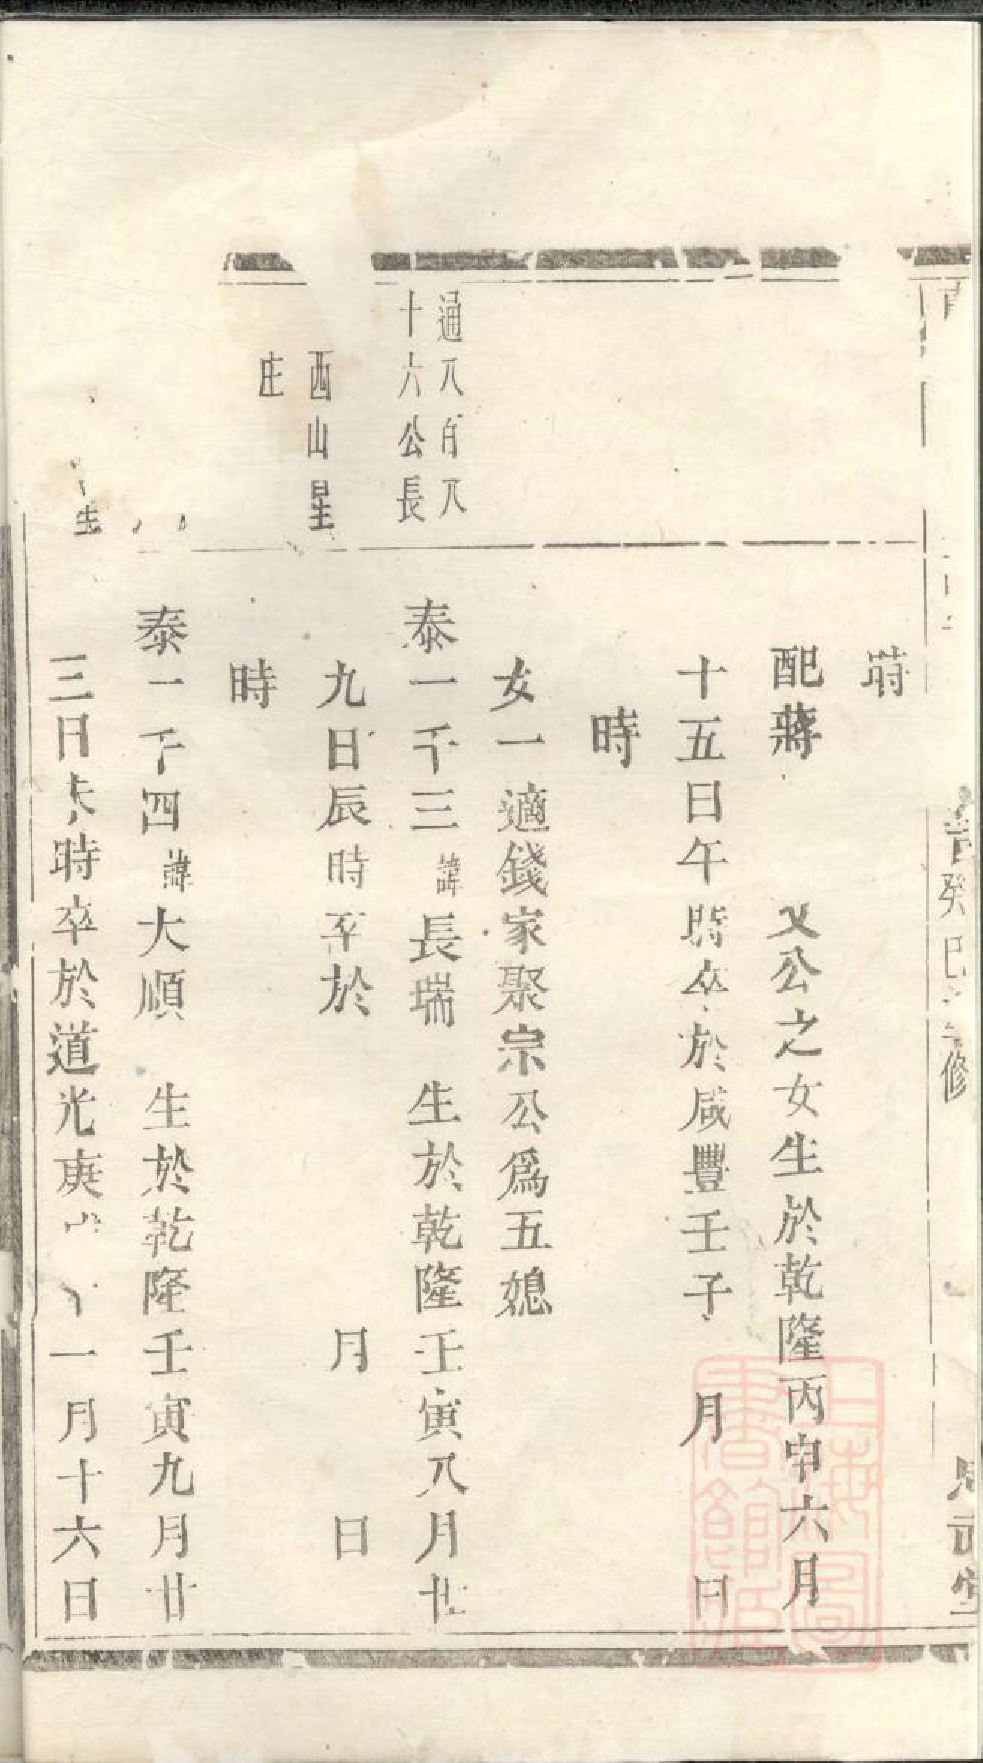 時
配蔣 文公之女生於乾隆丙申六月
十五日午時卒於咸豐壬子 月 日
時
女一適錢家聚宗公爲五媳
通八百八
十六公長
泰一千三諱長瑞 生於乾隆壬寅八月廿
西山星
九日辰時卒於 月 日
庄
時
泰一千四諱大順 生於乾隆壬寅九月廿
三日未時卒於道光庚戌十一月十六日
癸巳 修